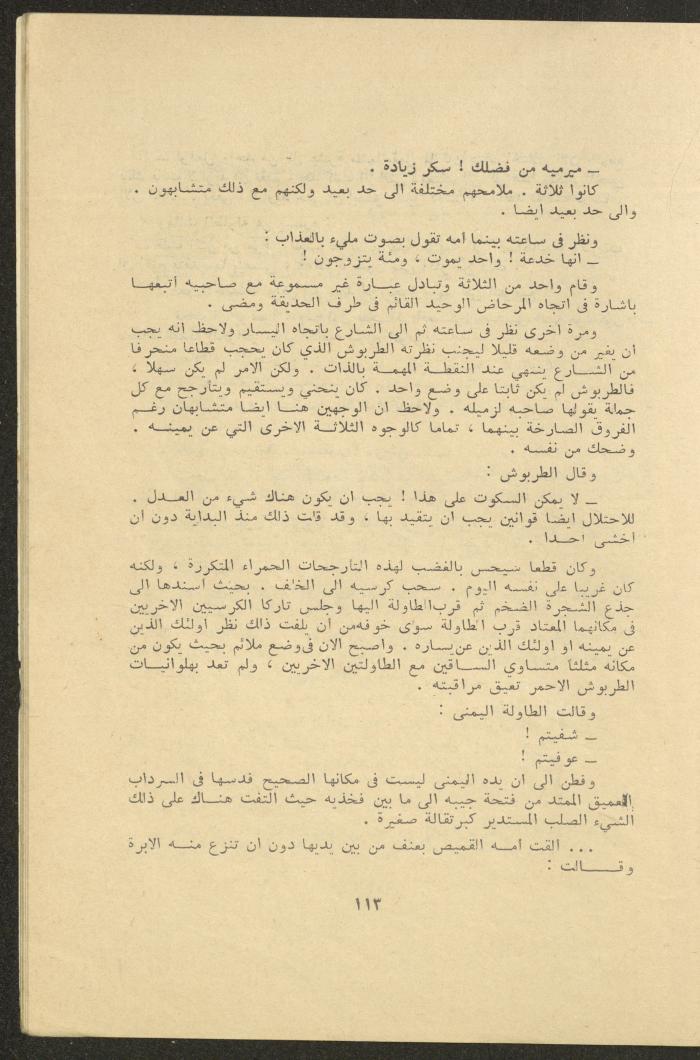 ـ ميرميه من فضلك ! سكر زيادة .
كانوا ثلاثة . ملامحهم مختلفة الى حد بعيد ولكنهم مع ذلك متشابهون .
والى حد بعيد ايضا .
ونظر فى ساعته بينما امه تقول بصوت مليء بالعذاب :
ـ انها خدعة ! واحد يموت ، ومئة يتزوجون !
وقام واحد من الثلاثة وتبادل عبـارة غير مسموعة مع صاحبيه أتبعهـا
باشارة فى اتجاه المرحاض الوحيد القائم فى طرف الحديقة ومضى .
ومرة اخرى نظر فى ساعته ثم الى الشارع باتجاه اليسار ولاحظ انه يجب
ان يغير من وضعه قليلا ليجنب نظرته الطربوش الذي كان يحجب قطاعا منحرفا
من الشــارع ينتهي عند النقطـة المهمـة بالذات . ولكن الامر لم يكن سهلا ،
فالطربوش لم يكن ثابتا على وضع واحد . كان ينحني ويستقيم ويتأرجح مع كل
جملة يقولها صاحبه لزميله . ولاحظ ان الوجهين هنـا ايضا متشابهان رغـم
الفروق الصارخة بينهما ، تماما كالوجوه الثلاثـة الاخرى التي عن يمينـه .
وضحك من نفسه .
وقال الطربوش :
ـ لا يمكن السكوت على هذا ! يجب ان يكون هناك شيء من العـدل .
للاحتلال ايضا قوانين يجب ان يتقيد بها ، وقد قلت ذلك منذ البداية دون ان
اخشى احـدا .
وكان قطعا سيحس بالغضب لهذه التأرجحات الحمراء المتكررة ، ولكنه
كان غريبا على نفسه اليوم . سحب كرسيه الى الخلف . بحيث أسندها الى
جذع الشجرة الضخم ثم قرب الطاولة اليها وجلس تاركا الكرسيين الاخريين
فى مكانهما المعتاد قرب الطاولة سوى خوفه من ان يلفت ذلك نظر اولئك الذين
عن يمينه او اولئك الذين عن يساره . واصبح الان فى وضع ملائم بحيث يكون من
مكانه مثلثا متساوي الســاقين مع الطاولتين الاخريين ، ولم تعد بهلوانيــات
الطربوش الاحمر تعيق مراقبته .
وقالت الطاولة اليمنى :
ـ شفيتم !
ـ عوفيتم !
وفطن الى ان يده اليمنى ليست فى مكانها الصحيح فدسها فى السرداب
العميق الممتد من فتحة جيبه الى ما بين فخذيه حيث التفت هنـاك على ذلك
الشيء الصلب المستدير كبرتقالة صغيرة .
... القت امـه القميص بعنف من بين يديها دون ان تنزع منـه الابرة
وقــالت :
١١٣